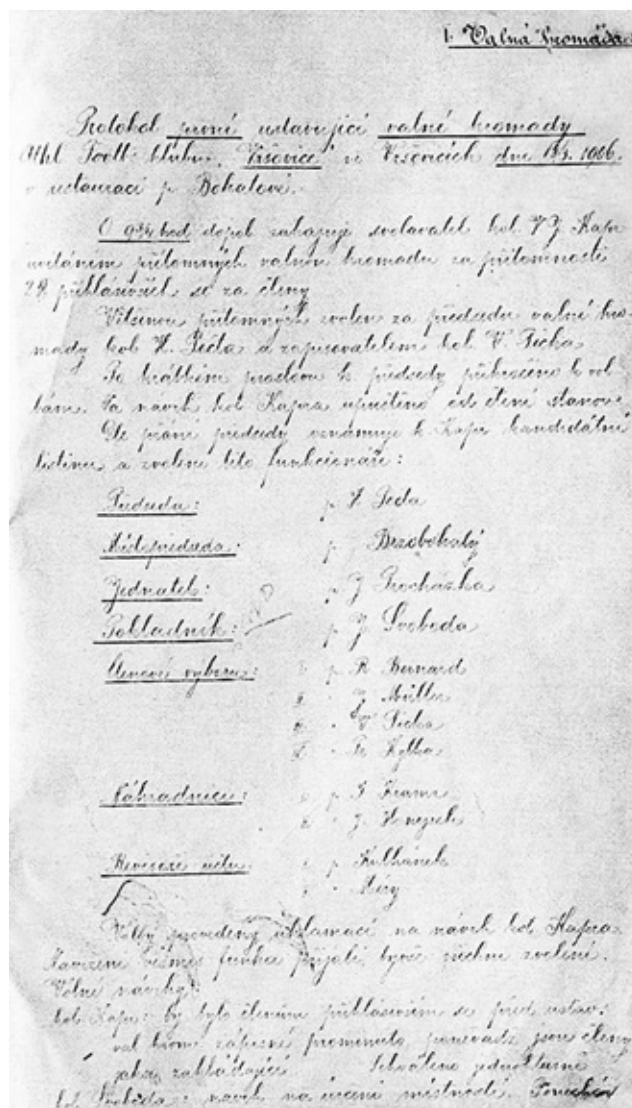 I. Valná hromada
Protokol první ustavující valné hromady
Athl. Footb. klubu. Vršovice ve Vršovicích dne 1906.
v restauraci p. Bohatové.
O 9¾ hod dopol. zahajuje svolavatel kol. V. J. Kapr
uvítáním přítomných valnou hromadu za přítomnosti
28 přihlásivších se za členy
Většinou přítomných zvolen za předsedu valné hro-
mady kol. a zapisovatelem kol. V. Pícha
Po krátkém proslovu k. předsedy přikročeno k vol-
bám. Na návrh kol. Kapra upuštěno od čtení stanov.
Dle přání předsedy oznamuje k. Kapr kandidátní
listinu a zvoleni tito funkcionáři:
Předseda: p.
Místopředseda: p. Brzobohatý
Jednatel: p. J. Procházka
Pokladník: p. J. Svoboda
Členové výboru: p. R. Bernard
" J. Müller
" V. Pícha
"
Náhradníci: p.
" J.
Revisoři účtů: p. Kulhánek
"
Volby provedeny aklamací na návrh kol. Kapra.
funkce přijali, byvše všichni zvoleni.
Volné návrhy:
kol. Kapr: by bylo členům přihlásivším se před ustav.
val. hrom. zápisné prominuto, poněvadž jsou členy
jako zakládající. Schváleno jednohlasně
kol. Svoboda: návrh na určení místnosti. Ponechán